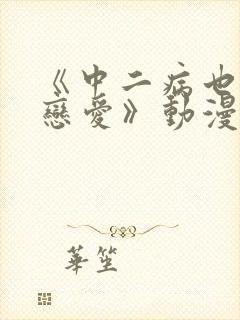 《中二病也
戀愛》動漫
華笙